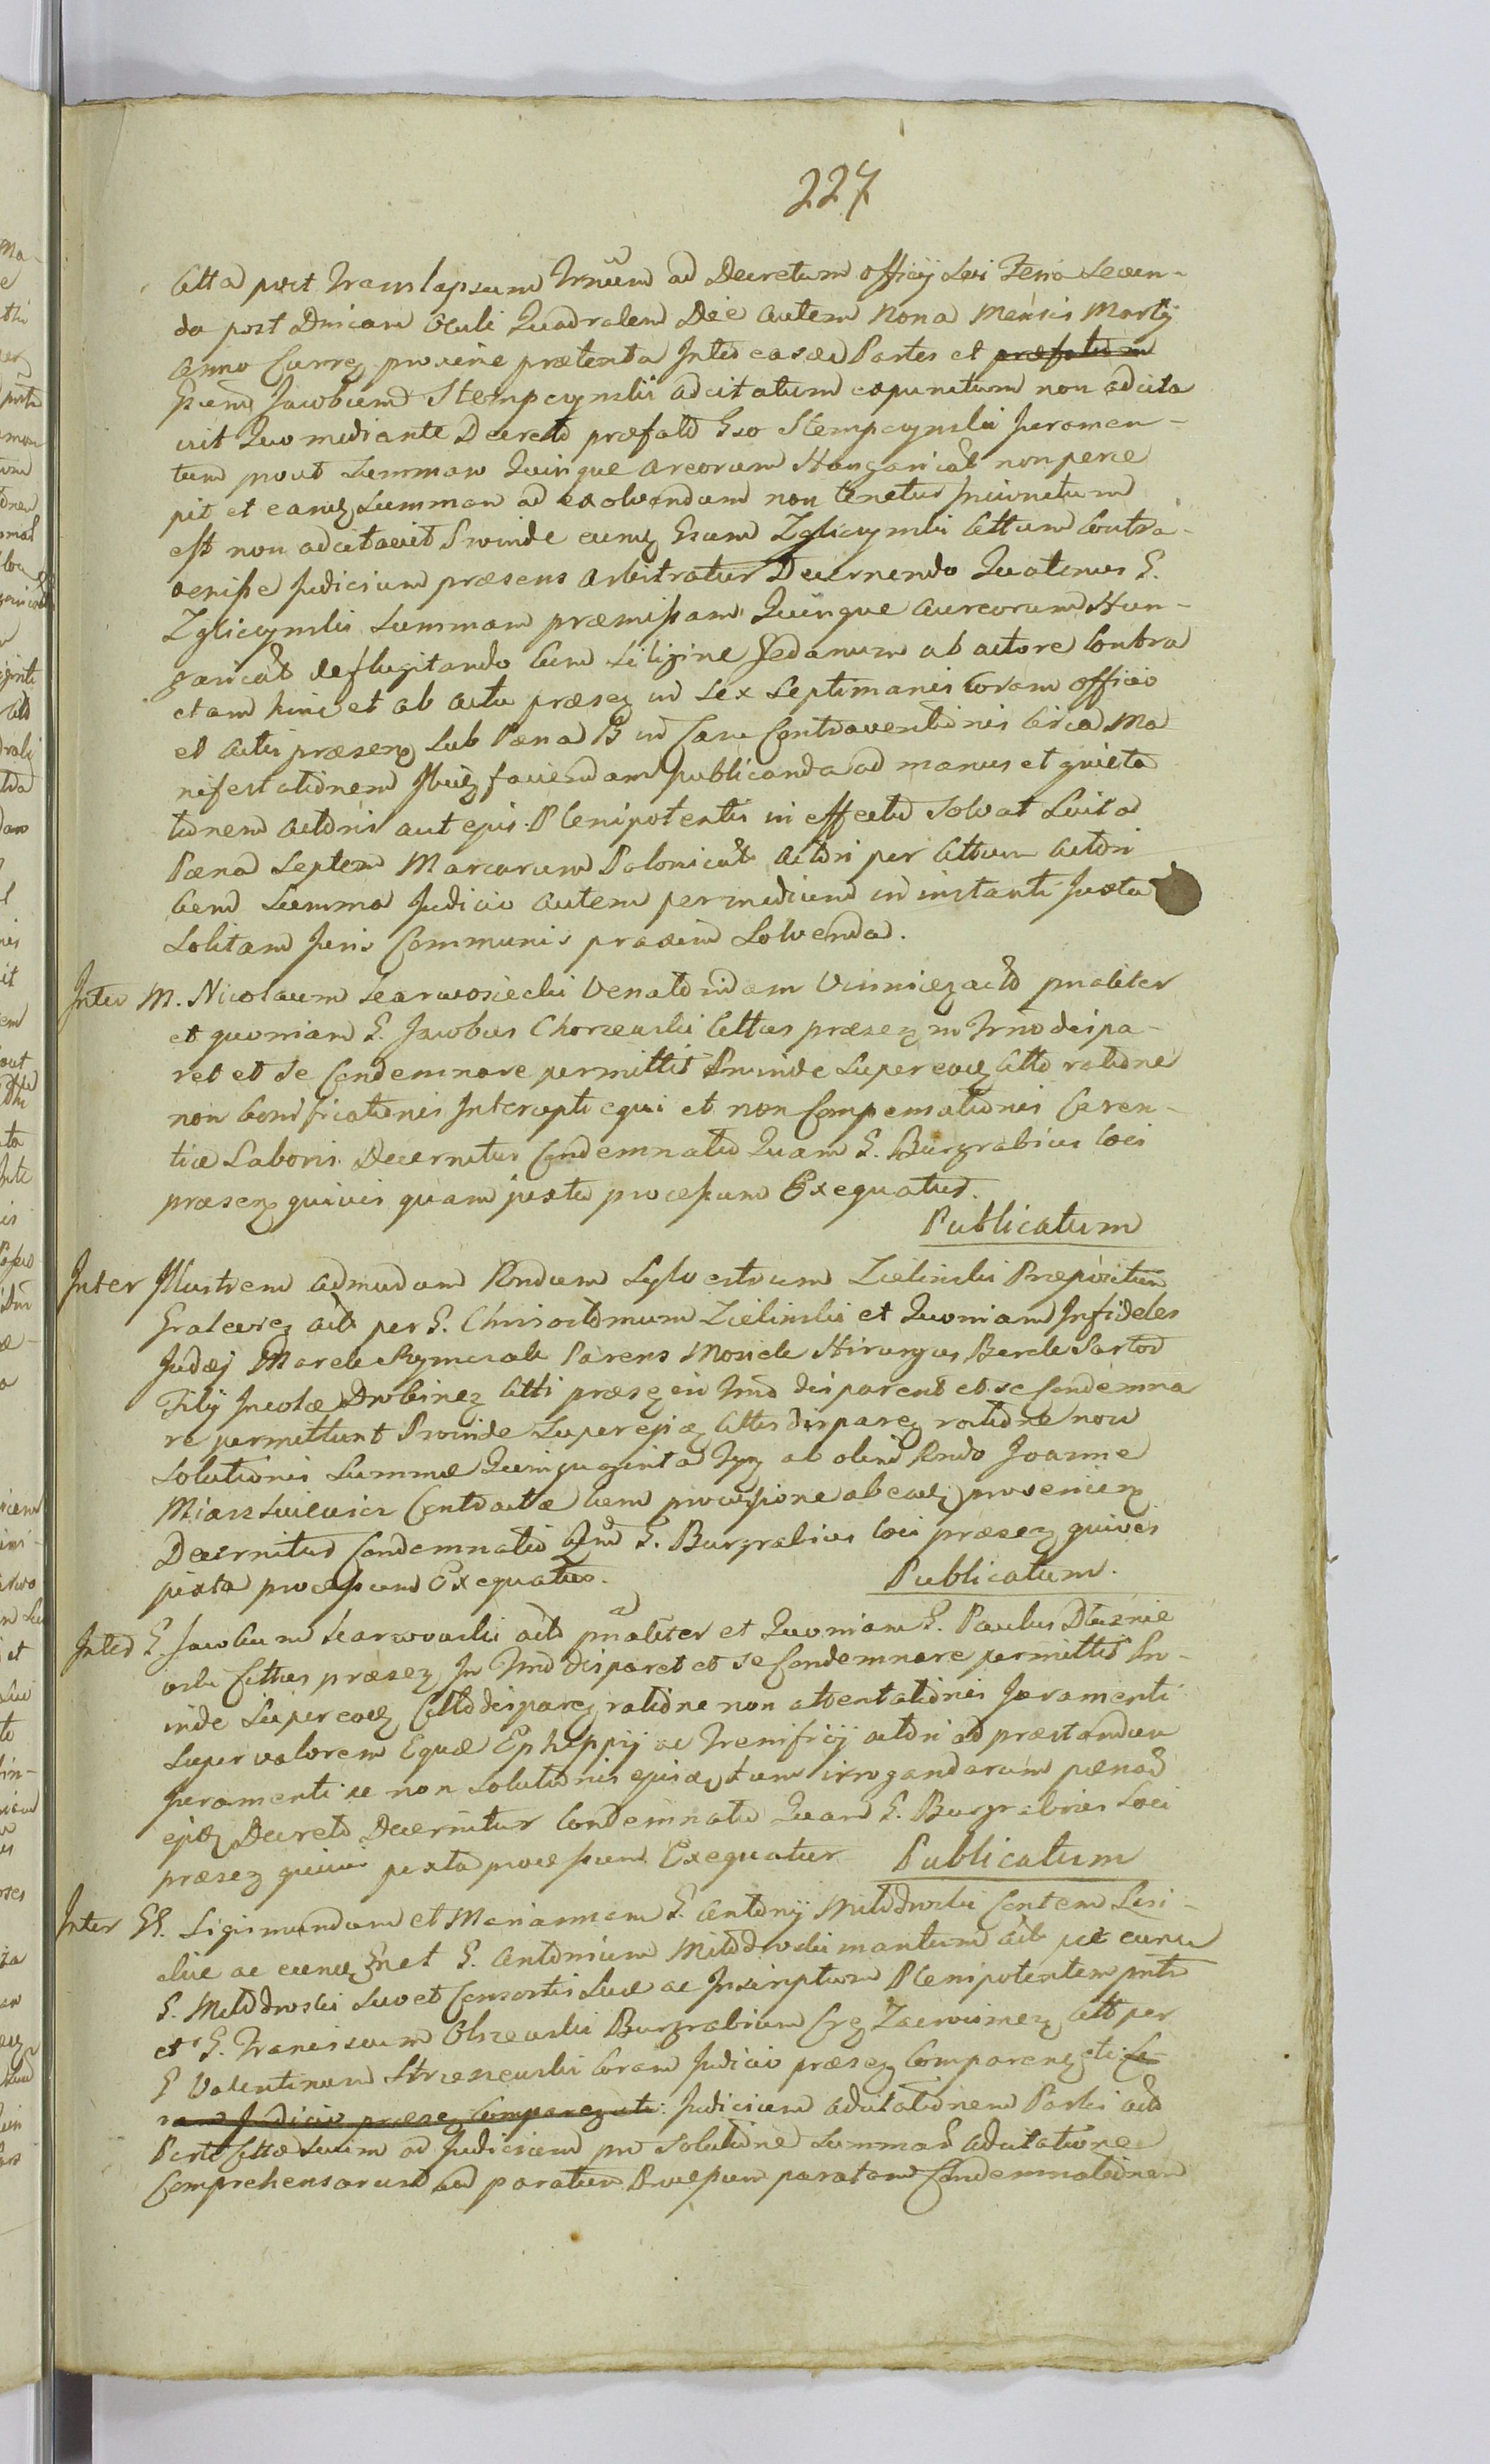 227
Citta post Translapsum Trnum ad Decretum officij Loci Feria Secun-
da post Dnicam Oculi Quadralem Die autem Nona Mensis Martij
Anno Currez proxime prætenta Inter easdem Partes et præfatum
Gsum Jacobum Stempczynski adcitatum expunctum non adcita
vit Quo mediante Decreto præfato Gso Stempczynski juramen-
tum prout Summam Quinque aureorum Hungarical non perce
pit et eamz Summam ad exolvendam non tenetur Injunctum
est non adcitavit Proinde eumz Gsum Zgliczynski Cittum Contra-
venisse Judicium præsens arbitratur Decernendo Quatenus G.
Zgliczynski Summam præmissam Quinque aureorum Hun-
garical deflagitando Cum Siligine sedanum ab actore Contra
ctam hinc et ab actu præsez in Sex Septimanis Coram officio
et actis præsenz Sub Pæna B in Casu Contraventionis Circa Ma
nifestationem Ibiz faciendam publicanda ad manus et quieta
tionem actoris aut ejus Plenipotentis in effectu Solvat Luita
Pæna Septem Marcarum Polonical actori per Cittum actori
Cum Summa Judicio autem per medium in instanti juxta
Solitam Juris Communis praxim Solvenda.
Inter M. Nicolaum Skarwosiecki Venatoriam Vinnicez actor pnaliter
et quoniam G. Jacobus Chorzewski Cittus præsez in Trno dispa-
ret et se Condemnare permittit Proinde Super eoz Citto ratione
non bonificationis Intercepti equi et non Compensationis Caren-
tiæ Laboris Decernitur Condemnatio Quam G. Burgrabius loci
præsez quivis quam juxta processum Exequatur.
Publicatum
Inter Illustrem admodum Rndum Sylvestrum Zielinski Præpositum
Gralevez actr per G. Chrisostomum Zielinski et Quoniam Infideles
Judæj Marek Rymczak Parens Mosiek Hirurgus Berek Sartor
Filij Incolæ Drobinez Citti præsez in Trno disparent et se Condemna
re permittunt Proinde Super ejsz Cittis disparez ratione non
Solutionis Summæ Quinquaginta Tyz ab olim Rndo Joanne
Miaszkiewicz Contractæ Cum provisione ab eaz proveniez
Decernitur Condemnatio Qm G. Burgrabius loci præsez quivis
juxta processum Exequatur.
Publicatum.
Inter G. Jacobum Skarwowski actr pnaliter et Quoniam G. Paulus Dłuznie
wski Cittus præsez In Trno disparet et se Condemnare permittit Pro-
inde Super eoz Citto disparez ratione non attentationis Juramenti
Super valorem Equæ Ephippij ac Frenificij actori ad præstandum
juramenti ac non Solutionis ejusz tum irrogandarum pænar
ejsz Decreto Decernitur Condemnatio Quam G. Burgrabius Loci
præsez quivis juxta processum Exequatur
Publicatum
Inter GG. Sigismundum et Mariannam G. Antonij Młodowski Contem Lesi-
ckie ac eumz Gnet G. Antonium Młodowski maritum actr per eum
G. Młodowski Suo et Consortis Suæ ac Inscriptum Plenipotentem pnte
et G. Franciscum Olszewski Burgrabium Crz Zacrocimez Citt per
G Valentinum Strzeszewski Coram Judicio præsez Comparenz etc: Co
ram Judicio præsez Comparez etc: Judicium adcitationem Partis actr
Parte Citta Suim ad Judicium pro Solutione Summar adcitatione
Comprehensarum ad paratum Processum paratam Condemnationem